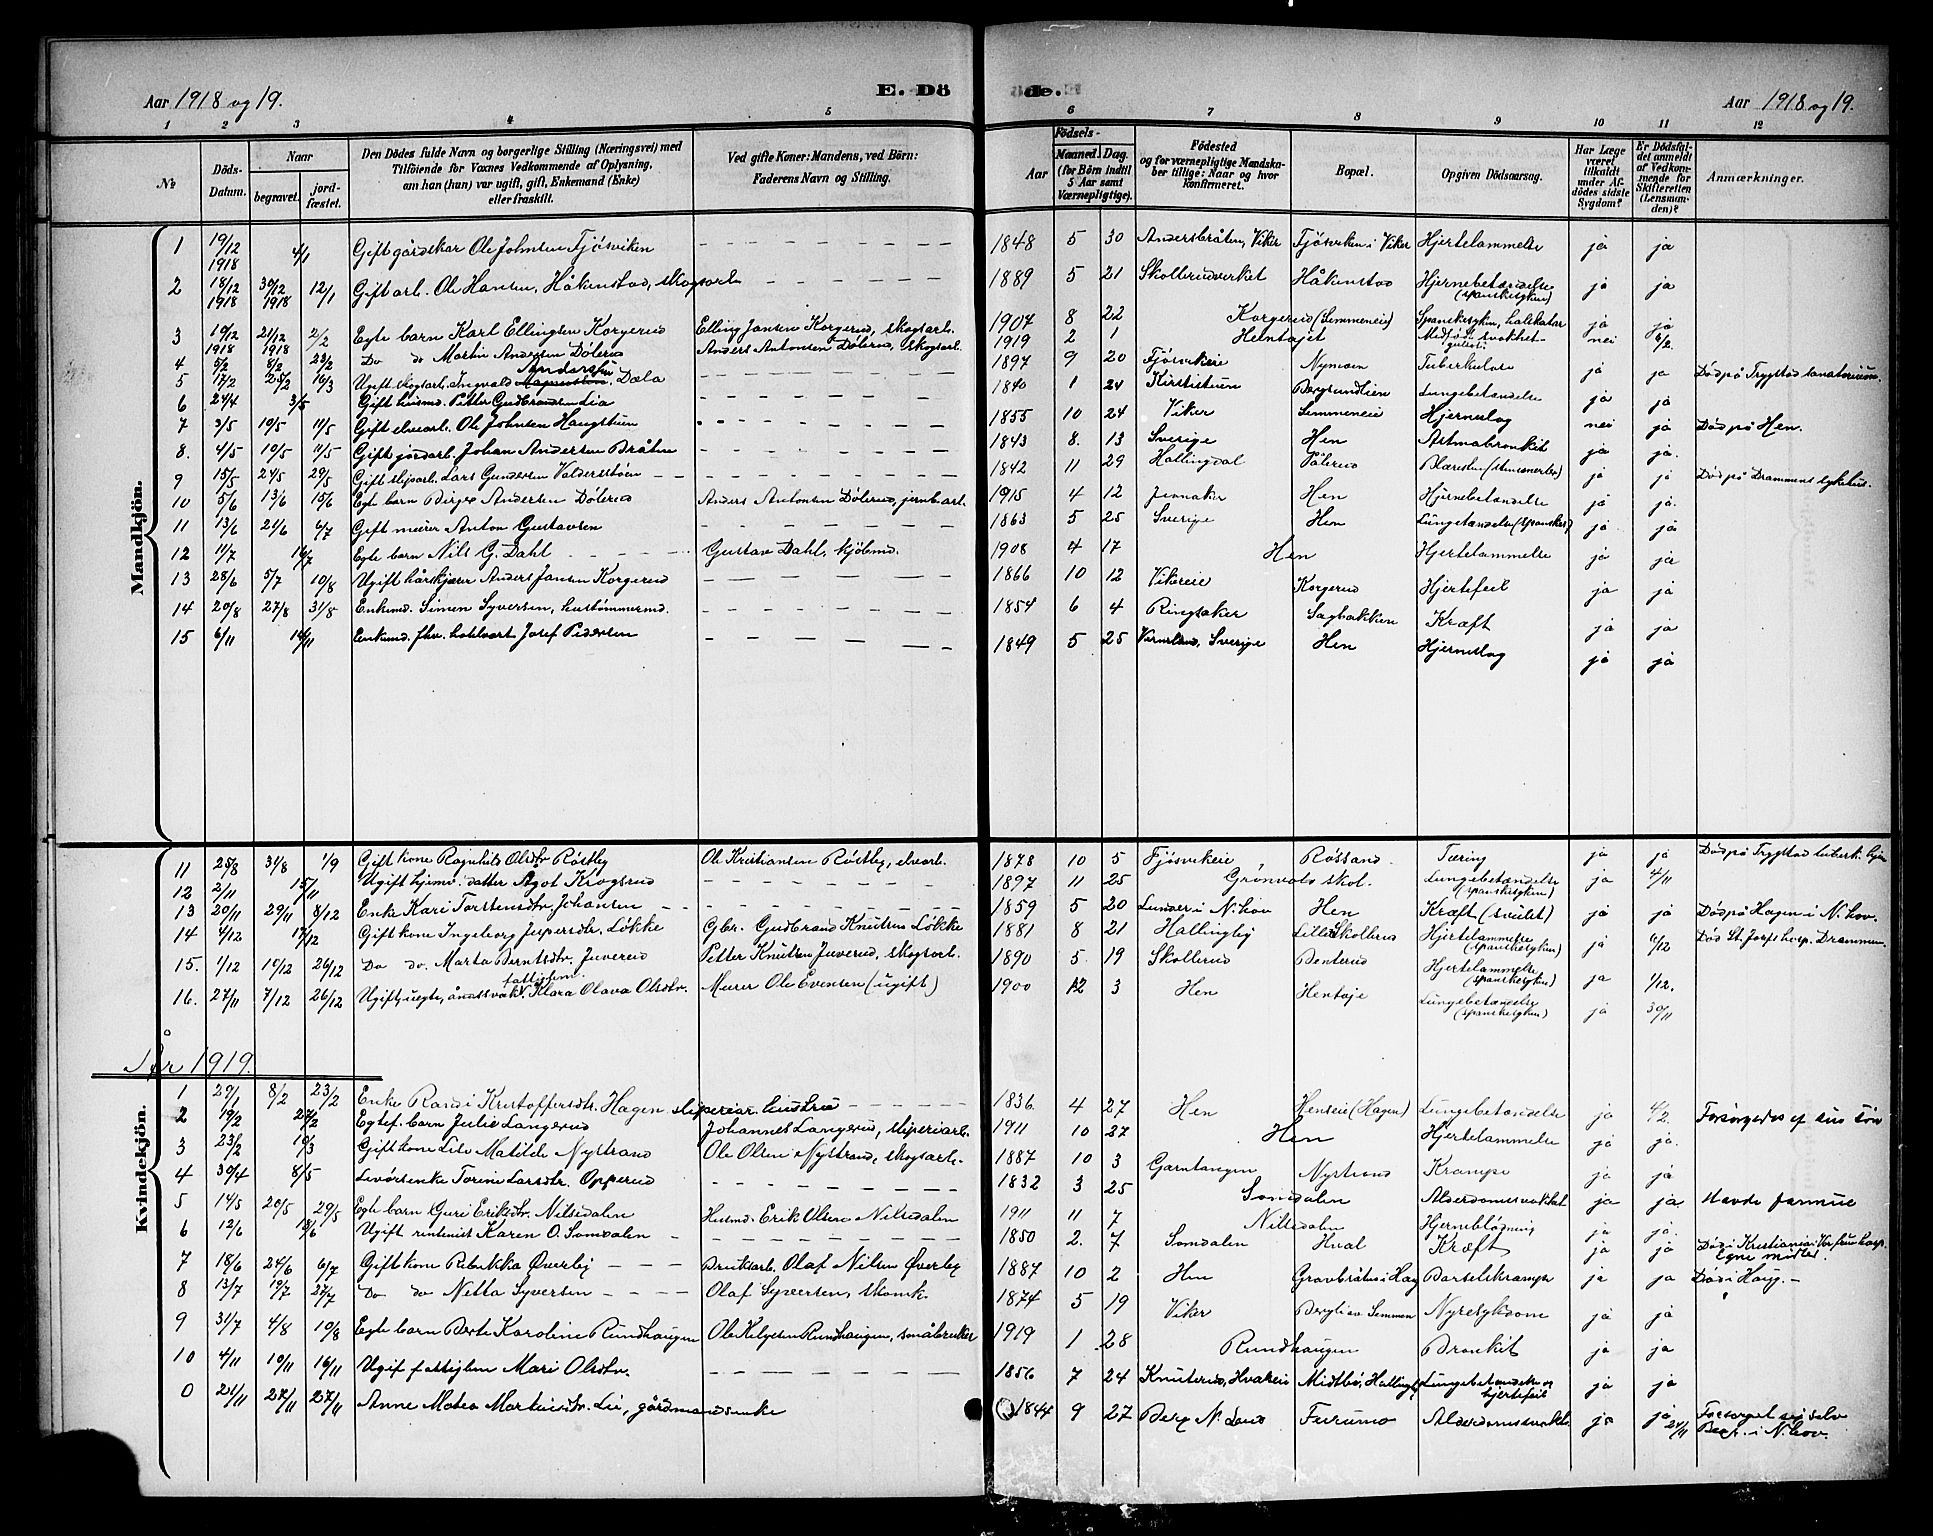 Aar 1918 og 19.
E. Dö
de.
Aar 1918 og 19.
1 2 3 4 5 6 7 8 9 10 11 12
№
Döds-Datum.
Naar
begravet.
jord-fæstet.
Den Dödes fulde Navn og borgerlige Stilling (Næringsvei) med
Tilföiende for Voxnes Vedkommende af Oplysning,
om han (hun) var ugift, gift, Enkemand (Enke)
eller fraskilt.
Ved gifte Koner: Mandens, ved Börn:
Faderens Navn og Stilling.
Födsels-
Aar
Maaned. Dag.
(for Börn indtil
5 Aar samt
Værnepligtige).
Födested
og for værnepligtige Mandska-
ber tillige: Naar og hvor
konfirmeret.
Bopæl.
Opgiven Dödsaarsag.
Har Læge
været
tilkaldt
under Af-
dödes sidste
Sygdom?
Er Dödsfal-
det anmeldt
af Vedkom-
mende for
Skifteretten
(Lensman-
den)?
Anmærkninger.
Mandkjön.
1 19/12 1918 4/1 Gift gårdskar Ole Johnsen Fjösviken 1848 5 30 Andersbråten, Viker Fjösviken i Viker Hjertelammelse ja ja
2 18/12 1918 30/12 1918 12/1 Gift arb. Ole Hansen, Håkenstad, skogsarb. 1889 5 21 Skollerudverket Håkenstad Hjernebetændelse (spanskesyken) ja ja
3 19/12 1918 21/12 1918 2/2 Egte barn Karl Ellingsen Korgerud Elling Jansen Korgerud, skogsarb. 1907 8 22 Korgerud (Semmeneie) Spanskesyken, halskatar ja ja
4 5/2 8/2 23/2 Do do Martin Andersen Dölerud Anders Antonsen Dölerud, skogsarb. 1919 2 1 Hentøjet Medfödt svakhet nei 6/2
5 17/2 25/2 16/3 Ugift skogsarb. Ingvald Andersen Dæla 1897 9 20 Fjösvikeie Nymoen Tuberkulose ja ja Död på Trygstad sanatorium.
6 24/4 3/5 Gift husmd. Petter Gudbrandsen Lia 1840 1 24 Kirstistuen Bergsundlien Lungebetændelse ja ja
7 3/5 10/5 11/5 Gift elvearb. Ole Johnsen Haugstuen 1855 10 24 Viker Semmeneie Hjerneslag nei ja Död på Hen.
8. 4/5 10/5 11/5 Gift jordarb. Johan Andersen Bråten 1843 8. 13 Sverige Hen Astmabronkit ja ja.
9 15/5 24/5 29/5 Gift slipsarb. Lars Gundersen Valdersstöen 1842 11 29 Hallingdal Dölerud ja ja Död på Drammens sykehus.
10 5/6 13/6 15/6 Egte barn Birge Andersen Dölerud Anders Antonsen Dölerud, jernbarb. 1915 4 12 Jevnaker Hen Hjernebetændelse ja ja.
11 13/6 21/6 6/7 Gift murer Anton Gustavsen 1863 5 25 Sverige Hen ja ja
12 11/7 16/7 Egte barn Nils G. Dahl Gustav Dahl, kjöbmd. 1908 4 17 Hen Hjertelammelse ja ja
13 28/6 5/7 10/8 Ugift hårskjærer Anders Jansen Korgerud 1866 10 12 Vikereie Korgerud Hjertefeil ja ja
14 20/8 27/8 31/8 Enkemd. Simen Syversen, hustömmermd. 1854 6 4 Ringsaker Sagbakken Kræft ja ja
15 6/11 16/11 Enkemd. fhv. Josef Pedersen 1849 5 25 Vermland, Sverige Hen Hjerneslag ja ja
Kvindekjön.
11 25/8 31/8 1/9 Gift kone Ragnhild Olsdtr. Röstby Ole Kristiansen Röstby, elvearb. 1878 10 5 Fjösvikeie Røssand Tæring ja ja Död på Trygstad tuberk. hjem
12 2/11 15/11 Ugift hjemv. datter Agot Krogsrud 1897 11 25 Grønvold skol. Lungebetændelse (spanskesyken) ja 4/11
13 20/11 29/11 8/12 Enke Kari Torstensdtr. Johansen 1859 5 20 Lunder i N. Hov Hen Kræft (svulst) ja ja Död på Hagen i N. Hov.
14 4/12 17/12 Gift kone Ingeborg Jespersdtr. Lökke Gbr. Gudbrand Knutsen Lökke 1881 8 21 Hallingby Lille Skollerud Hjertelammelse (spanskesyken) ja 6/12 Död St. Josefs hosp. Drammen
15. 1/12 10/12 26/12 Do do. Marta Berntsdtr. Juverud Petter Knutsen Juverud, skogsarb. 1890 5. 19 Skollerud Benterud Hjertelammelse (spanskesyken) ja 1/12.
16. 27/11 7/12 26/12 Ugift, uegte, åndssvak, fattiglem. Klara Olava Olsdtr. Murer Ole Evensen (ugift) 1900 12 3 Hen Hentøje Lungebetændelse (spanskesyken) ja 30/11
År 1919.
1 29/1 8/2 23/2 Enke Randi Kristoffersdtr. Hagen, sliperiar. hustru 1836 4 27 Hen Henseie (Hagen) Lungebetændelse ja 4/2. Forsörgedes af sin sön
2 19/2 27/2 Egtef. barn Julie Langerud Johannes Langerud, sliperiarb. 1911 10 27 Hen Hjertelammelse ja ja.
3 23/2 10/3 Gift kone Lise Matilde Nystrand Ole Olsen Nystrand, skogsarb. 1887 10 3 Garntangen Nystrand Krampe ja ja
4 30/4 8/5 Levörsenke Torine Larsdtr. Opperud 1832 3 25 Somdalen Alderdomssvakhet ja ja. Havde formue
5 14/5 20/5 29/5 Egte barn Guri Eriksdtr. Nilsedalen Husmd. Erik Olsen Nilsedalen 1911 11 7 Nilsedalen Hjerneblödning ja ja.
6 12/6 19/6 Ugift rentenist Karen O. Somdalen 1850 2. 7 Somdalen Hval Kræft ja ja Död i Kristiania Egne midler
7 18/6 24/6 6/7 Gift kone Rebekka Överby Bruksarb. Olaf Nilsen Överby 1887 10 2 Hen Gravbråten i Haug Barselskrampe ja ja Död i Haug.
8 13/7 19/7 27/7 Do do Netta Syversen Olaf Syversen, skomk. 1874 5 19 Viker Nyresykdom ja ja
9 31/7 4/8 10/8 Egte barn Berte Karoline Rundhaugen Ole Helgesen Rundhaugen, småbruker 1919 1 28 Rundhaugen Bronkit ja ja
10 4/11 10/11 16/11 Ugif fattiglem Mari Olsdtr. 1856 7 24 Knuterud, Hvaleeie Midtbö, Hallingby Lungebetændelse og hjertefeil ja ja
0 21/11 27/11 27/11 Anne Matea Martinsdtr. Lie, gårdmandsenke 1844 9 27 Berg N. Land Furumo Alderdomssvakhet ja ja 24/11 Forsörget sig selv Begr. i N. Hov.